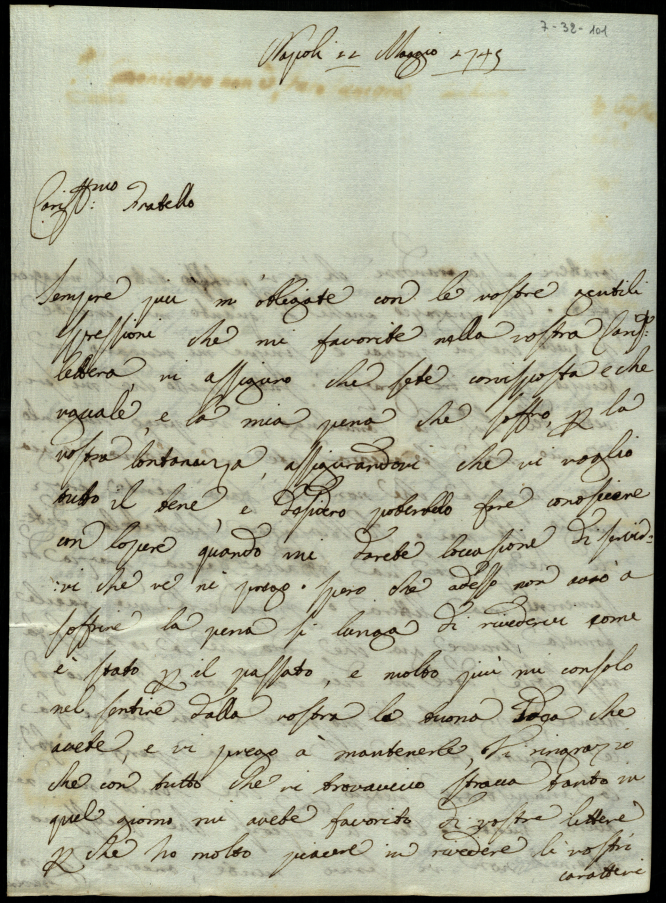 7-32-101
Napoli 22 Maggio 1745
Cariss:mo Fratello
Sempre più mi obligate con le vostre gentili
spressioni che mi favorite nella vostra Cariss:
lettera, vi assiguro che sete corrisposta e che
uguale, e la mia pena che soffro, p la
vostra lontananza, assigurandovi che vi voglio
tutto il bene, e desidero poterello fare conosciere
con l'opere quando mi darete l'occasione di servir=
:vi che ve ne prego. spero che adesso non avrò a
soffrire la pena sì lunga di rivedervi come
è stato p il passato, e molto più mi consolo
nel sentire dalla vostra la buona che
avete, e vi prego à mantenerle, Vi ringrazio
che con tutto che vi trovavivo stracca tanto in
quel giorno mi avete favorito di vostre lettere
p che ho molto piacere in rivedere li vostri
caratteri